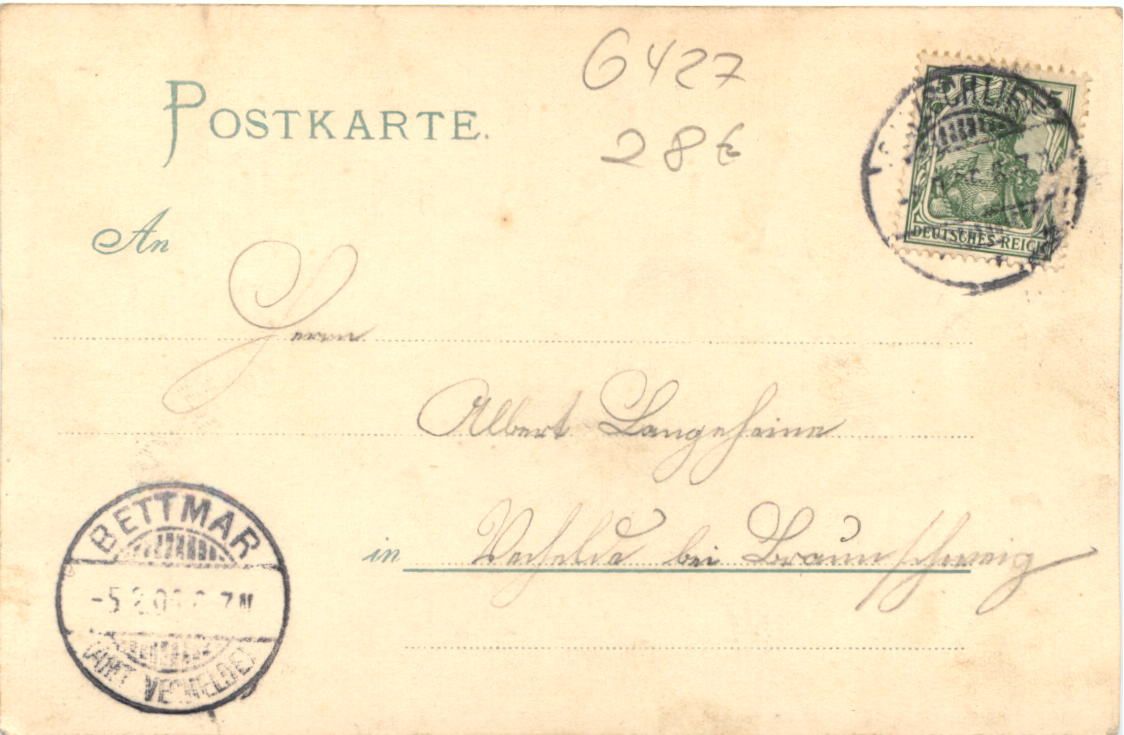 G427
28€
POSTKARTE.
5
DEUTSCHES REICH
An
Herrn
Albert Langeheine
in Vechelde bei Braunschweig
BETTMAR
7 N
(AMT VECHELDE)